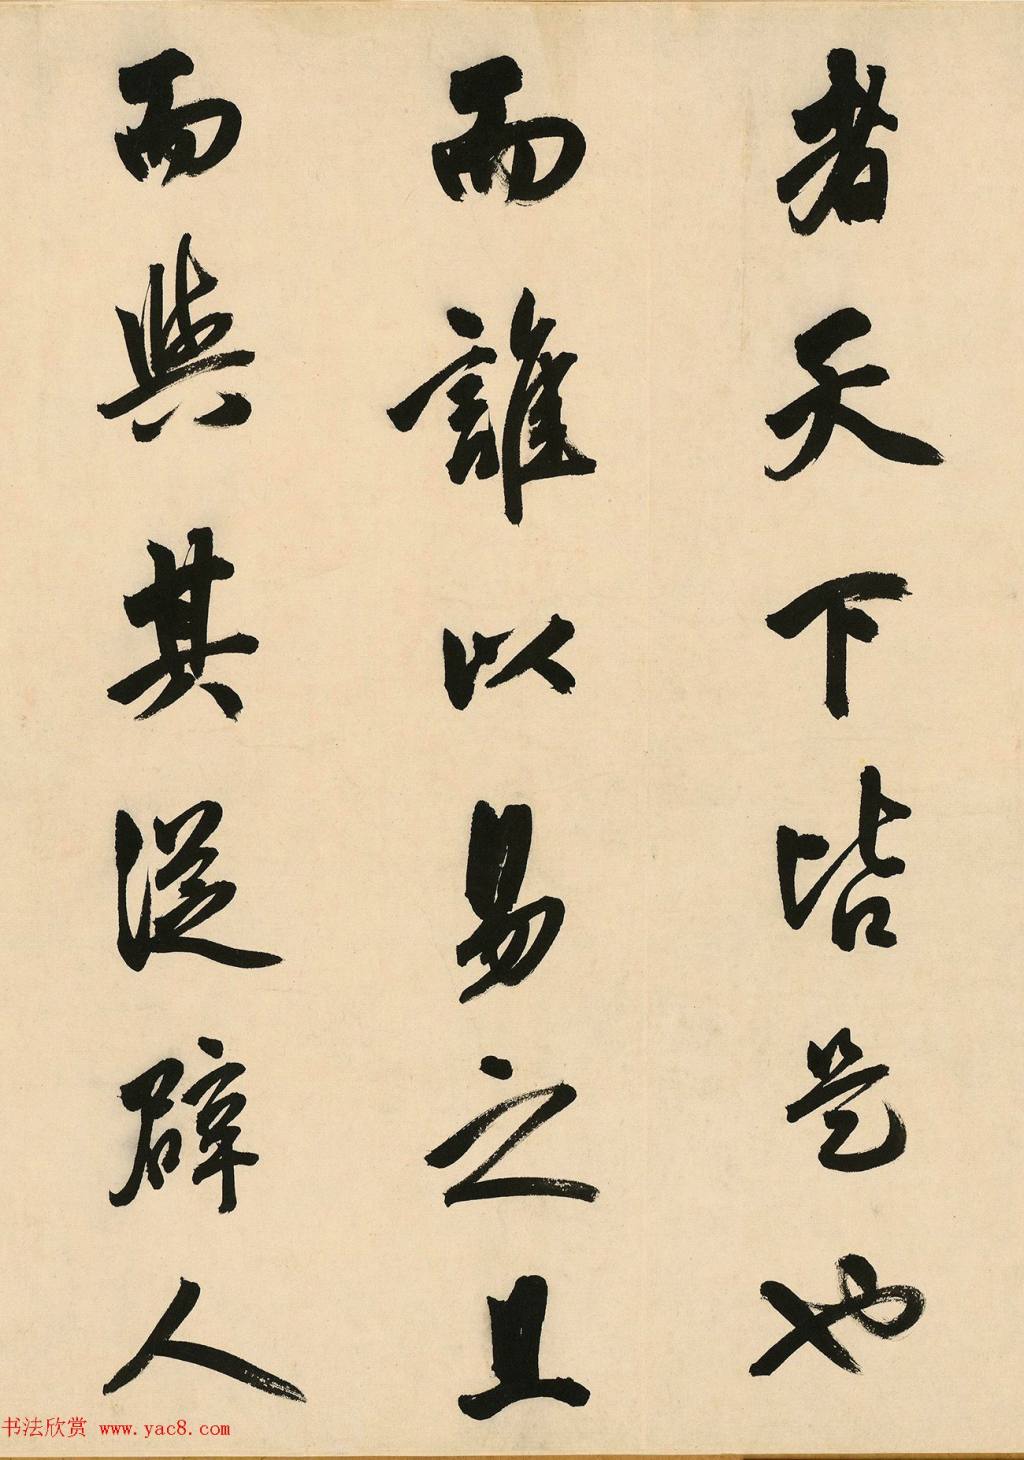 者天下皆是也
而誰以易之且
而與其從辟人
书法欣赏 www.yac8.com